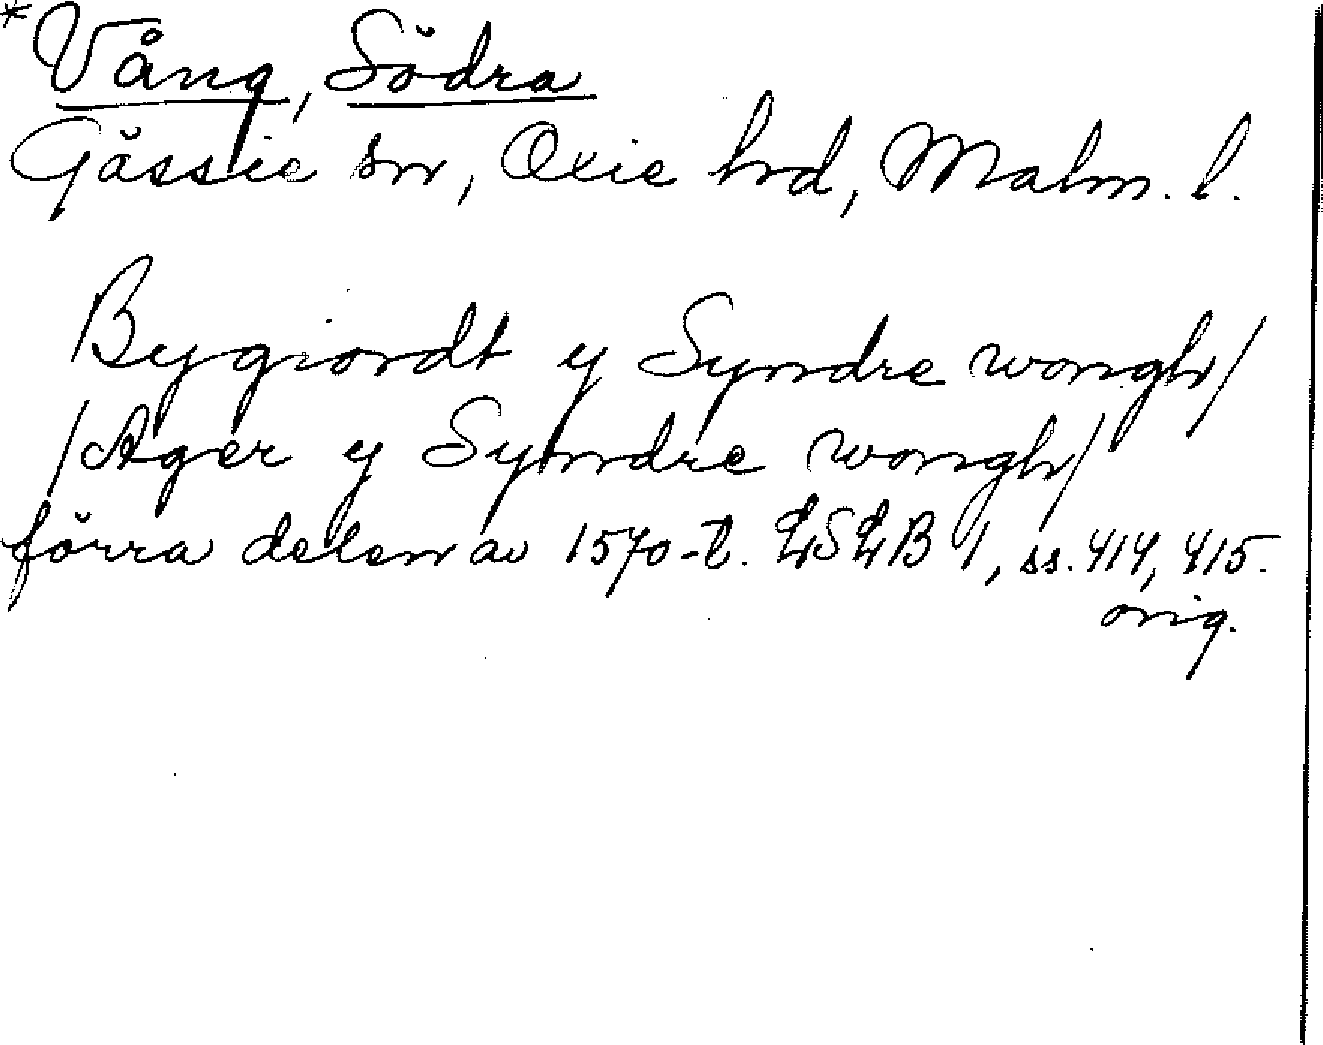 *Vång, Södra
Gässie sn, Oxie hd, Malm. l.
Bygiordt y Syndre wongh/
/Ager y Synndre wongh/
förra delen av 1570-t. LSLB 1, ss. 414, 415.
orig.